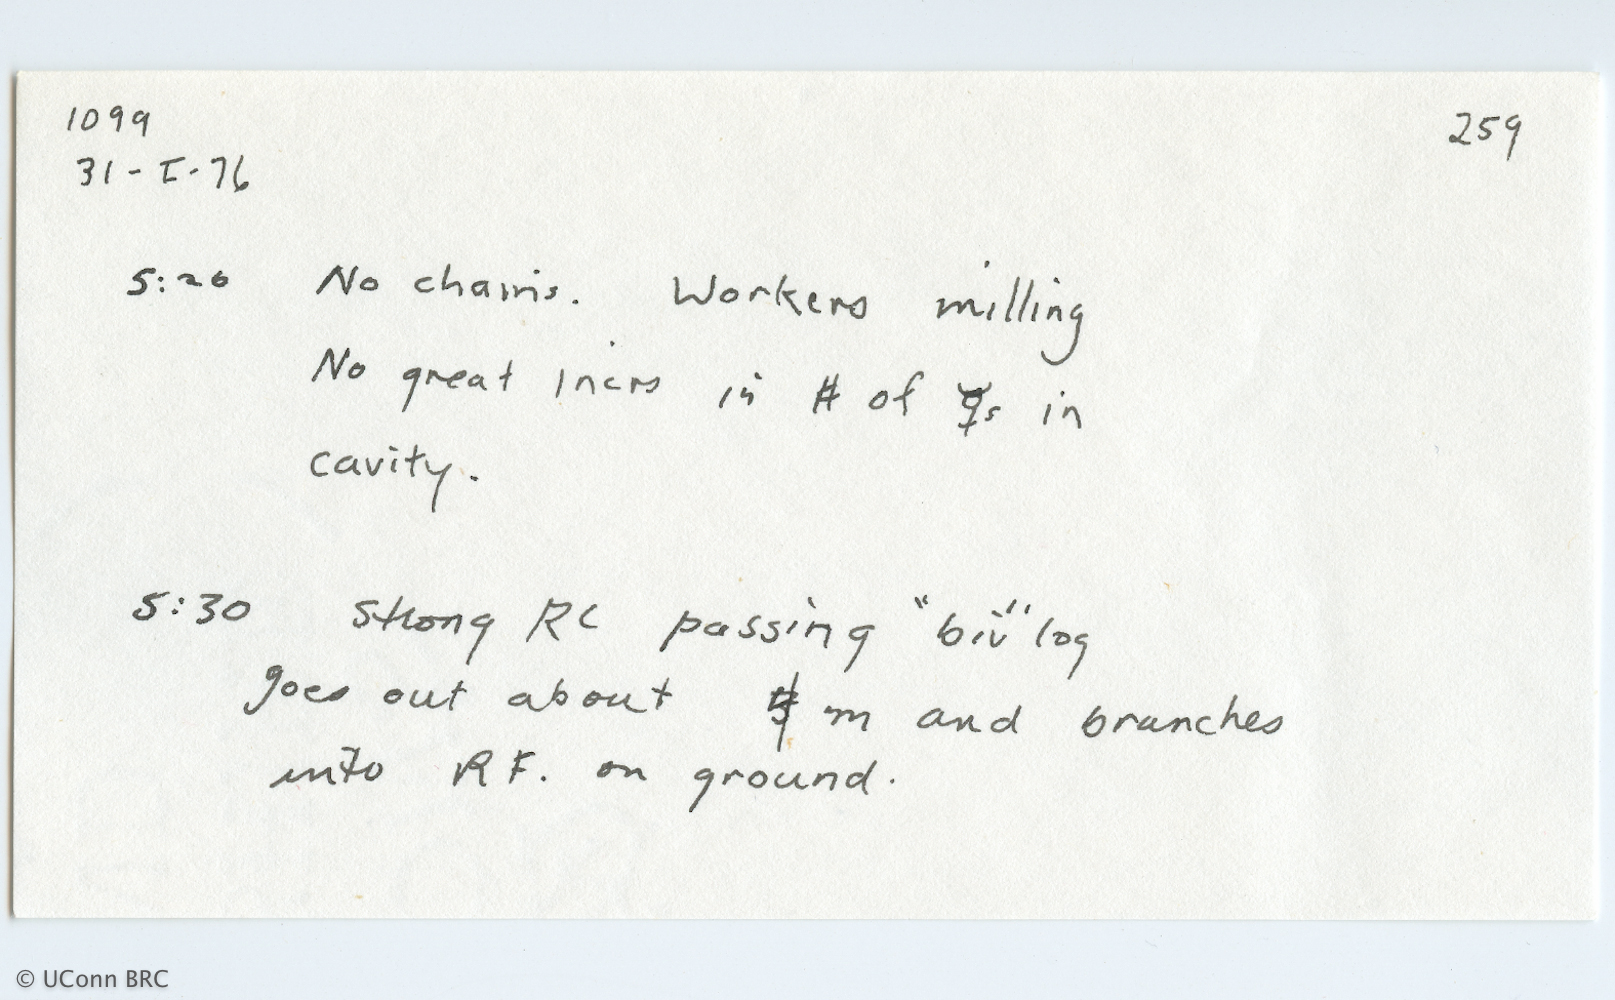 1099
259
31-I-76
5:20 No chains. Workers milling
No great incrs in # of ☿s in
cavity.
5:30 Strong RC passing "biv" log
goes out about m and branches
into RF. on ground.
© UConn BRC